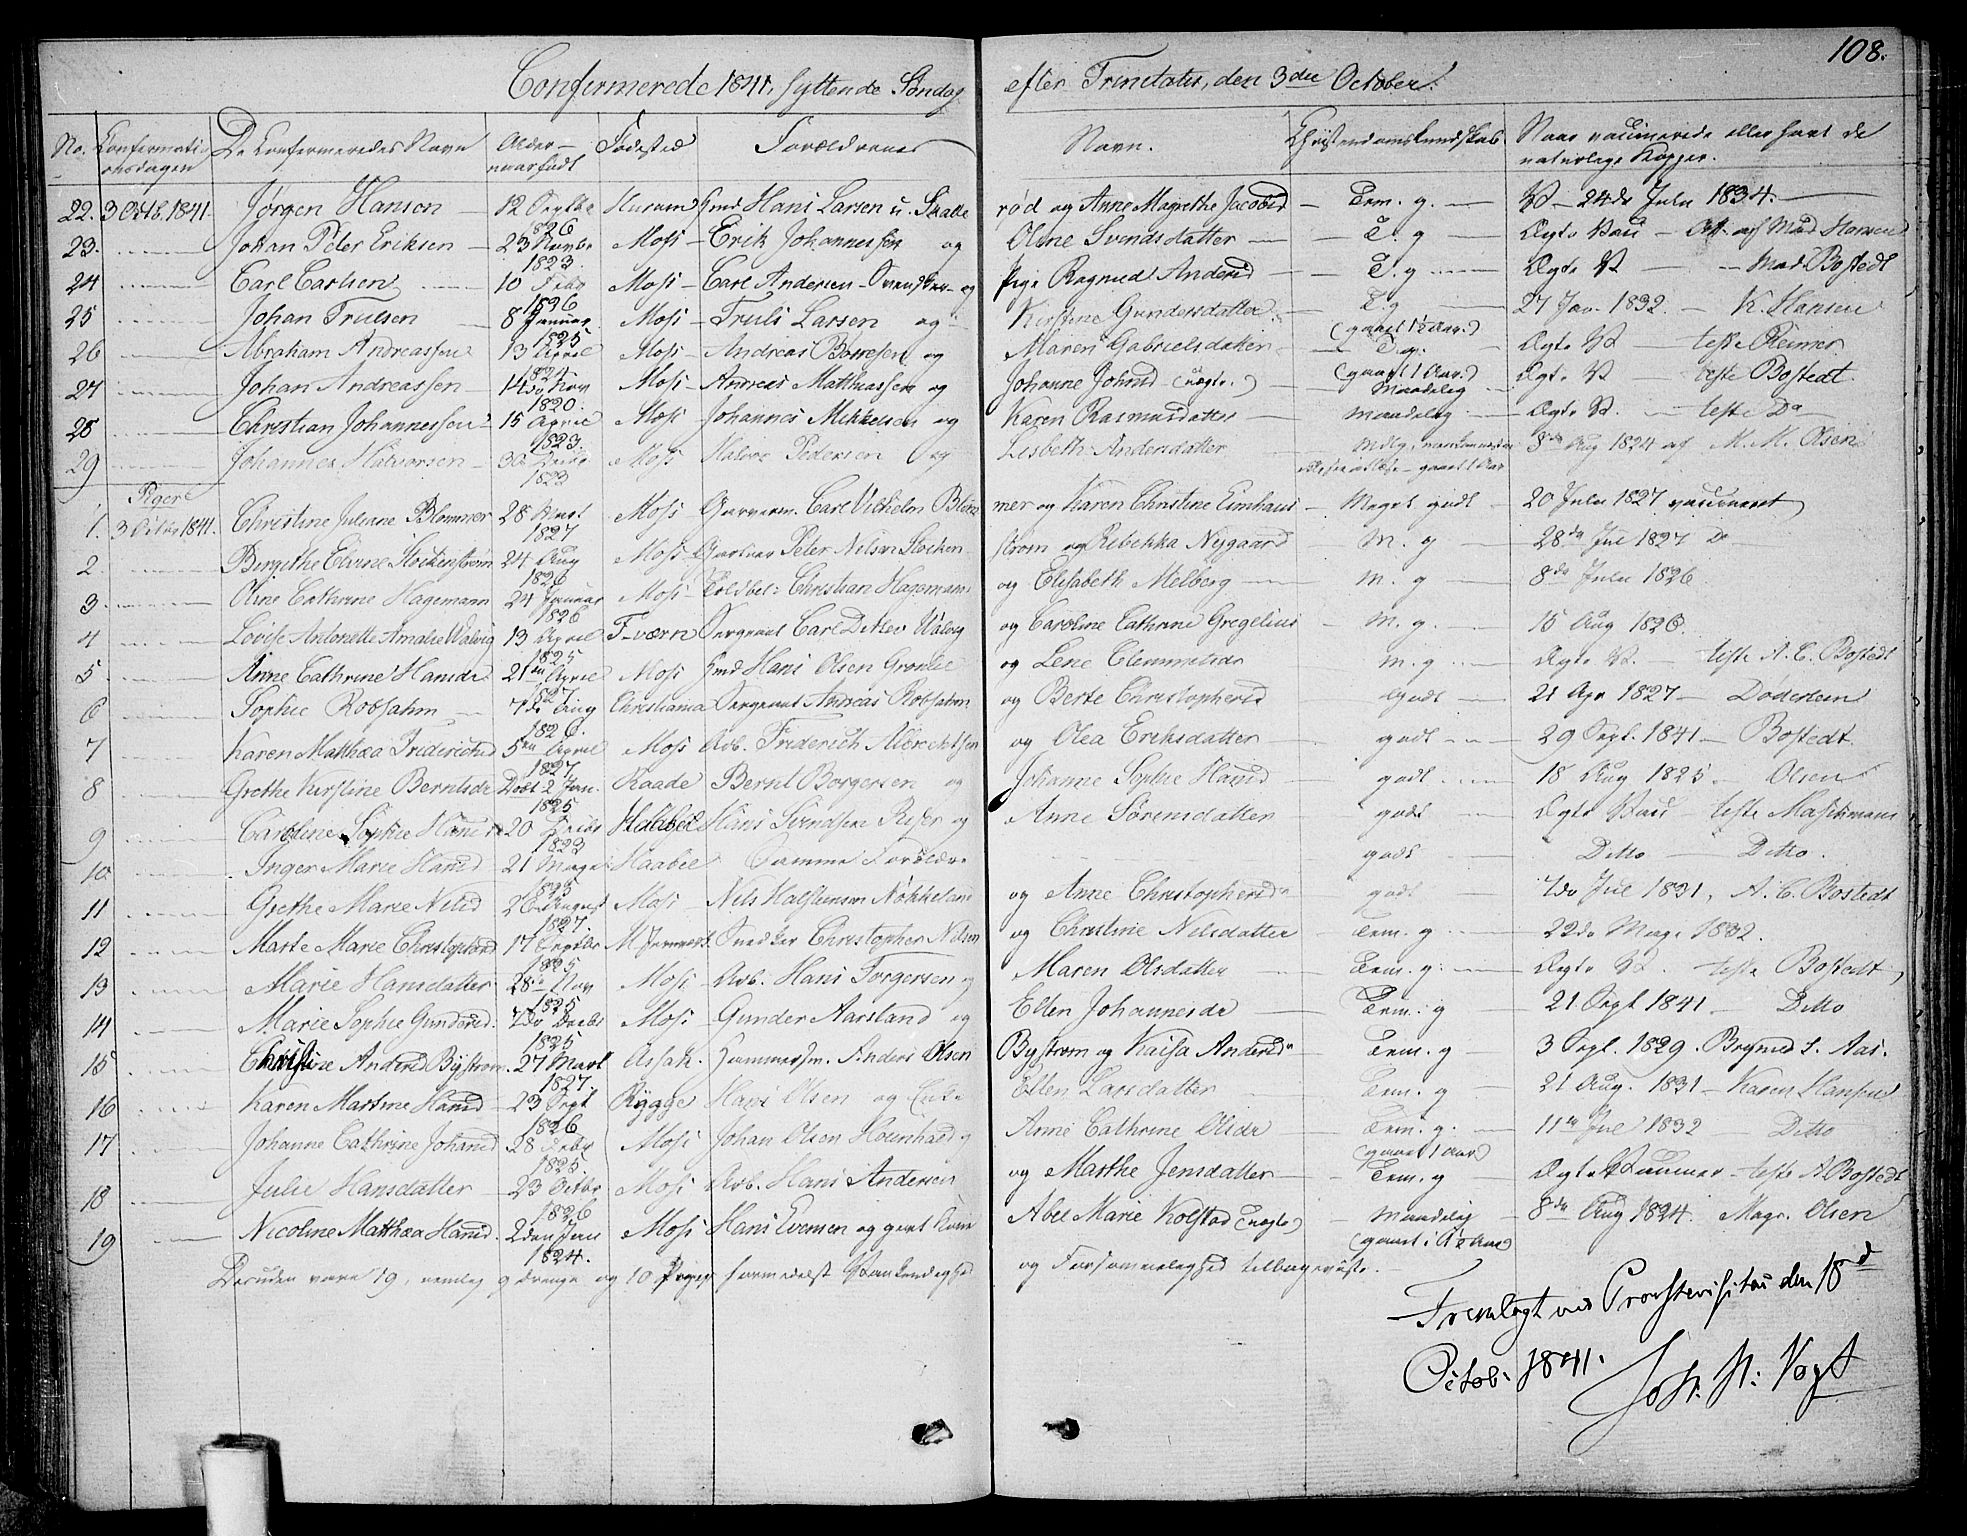 108.
Confirmerede 1841, syttende Søndag efter Trinitatis, den 3die October.
No. Confirmationsdagen De Confirmeredes Navn Alder naar født Fødested Forældrenes Navn. Christendomskundskab Naar vaccinerede eller havt de naturlige Kopper.
22. 3 Octb. 1841. Jørgen Hansen 12 1826 Hurum Hans Larsen u. Skade rød og Anne Magrethe Jacobsd Tem. g. V 24de Julii 1834.
23. Johan Peter Eriksen 23 Novbr 1823. Moss Erik Johannessen og Oline Svendsdatter T. g Ægte Vac Att. af Mad Hansen
24 Carl Carlsen 10 Febr 1826 Moss Carl Andersen Svensker og Pige Ragnild Andersd T. g Ægte V Mad Bostedt
25 Johan Trulsen 8 Januar 1825 Moss Truls Larsen og Kirstine Gundersdatter T. g (gaaet 1½ Aar.) 27 Jan. 1832. K. Hansen
26 Abraham Andreassen 13 April 1824 Moss Andreas Borresen og Maren Gabrielsdatter T. g. (gaaet 1 Aar.) Ægte V teste Reimer
27 Johan Andreassen 14de Nov 1820. Moss Andreas Matthiassen og Johanne Johnsd (uægte.) Maadelig Ægte V teste Bostedt.
28 Christian Johannessen 15 April 1823. Moss Johannes Mikkelsen og Karen Rasmusdatter maadelig Ægte V. teste Do
29 Johannes Halvorsen 30 Decbr 1823 Moss Halvor Pedersen og Lisbeth Andersdatter Mdlg. gaaet 1 Aar 8de Aug 1824 af M. M. Olsen
Piger
1. 3 Octbr 1841. Christine Julianne Blommer 28 Augt 1827 Moss Garverm. Carl Vilhelm Blommer og Karen Christine Eimhaus Meget godt 20 Julii 1827 vaccineret
2 Bergithe Elvine Stockenstrøm 24 Aug 1826 Moss Peter Nilsen Stockenstrøm og Rebekka Nygaard M. g 28de Jul 1827 Do
3. Oline Cathrine Hagemann 24 Januar 1826 Moss Christian Hagemann og Elisabeth Melberg M. g 8de Julii 1826.
4 Lovise Antonette Amalie Walvig 13 April 1825 F-værn Sergeant Carl Ditlev Walvig og Caroline Cathrine Gregelius M. g. 15 Aug 1826.
5 Anne Cathrine Hansdr 21de April 1827. Moss Smd Hans Olsen Grønlie og Lene Clemmetsdr M. g Ægte V. teste A. C. Bostedt
6 Sophie Robsahm 7de Aug 1826. Christiania Sergeant Andreas Robsahm og Berte Christophersd Godt 21 Apr 1827 Døderlein
7 Karen Matthea Friderichsd 5te April 1827. Moss Arb. Friderich Albrechtsen og Olea Eriksdatter godt 29 Sept. 1841 Bostedt.
8 Grethe Kirstine Berntsdr Døbt 2 Jan. 1825 Raade Bernt Borgersen og Johanne Sophie Hansd godt 18 Aug 1825. Olsen
9 Caroline Sophie Hansdr 20 Decbr 1823 Haabøl Hans Svendsen Røser og Anne Sørensdatter godt Ægte Vac teste Maschmann
10 Inger Marie Hansd 21 Maji 1825 Haabøl Samme Forældre godt Ditto Ditto.
11 Grethe Marie Nilsd 26 August 1827. Moss Nils Halstensen Nøkkeland og Anne Christophersdr godt 7de Jul 1831, A. C. Bostedt
12 Marte Marie Christophersd 17 Septbr 1825 M Jernverk. Snedker Christopher Nilsen og Christine Nilsdatter Tem. g. 22de Maji 1832.
13 Marie Hansdatter 28de Nov 1825 Moss Arb. Hans Torgersen og Maren Olsdatter Tem. g. Ægte V. teste Bostedt,
14 Marie Sophie Gundersd. 7de Decbr 1825 Moss Gunder Aarsland og Ellen Johannesdr Tem. g 21. Sept 1841 Ditto
15 Christine Andersd Bystrøm. 27 Mart 1827. Assak. Hammersm. Anders Olsen Bystrøm og Kaisa Andersdr Tem. g 3 Sept. 1829. Brynild S. Aas.
16 Karen Martine Hansd 23 Sept 1826 Rygge Hans Olsen og Enke Ellen Larsdatter Tem. g. 21 Aug. 1831 Karen Hansen
17 Johanne Cathrine Johansd 28 Febr 1825 Moss Johan Olsen og Anne Cathrine Olsdr Tem. g. (gaaet 1 Aar) 11te Jul 1832 Ditto
18 Julie Hansdatter 23 Octbr 1826 Moss Arb. Hans Andersen og Marthe Jensdatter Tem. g Ægte Vacciner teste A Bostedt
19 Nicoline Matthea Hansd. 2den Jan 1824. Moss Hans Evensen og givt Kone Abel Marie Kolstad (uægte) Maadelig (gaaet i 1½ Aar) 8de Aug 1824. Magr. Olsen
Desuden vare 19, nemlig 9 drenge og 10 Piger formedelst Vankundighed og Forsømmelighed tilbageviiste.
Fremlagt ved Provstevisitats den 18d
Octob. 1841.
Joh. H. Vogt